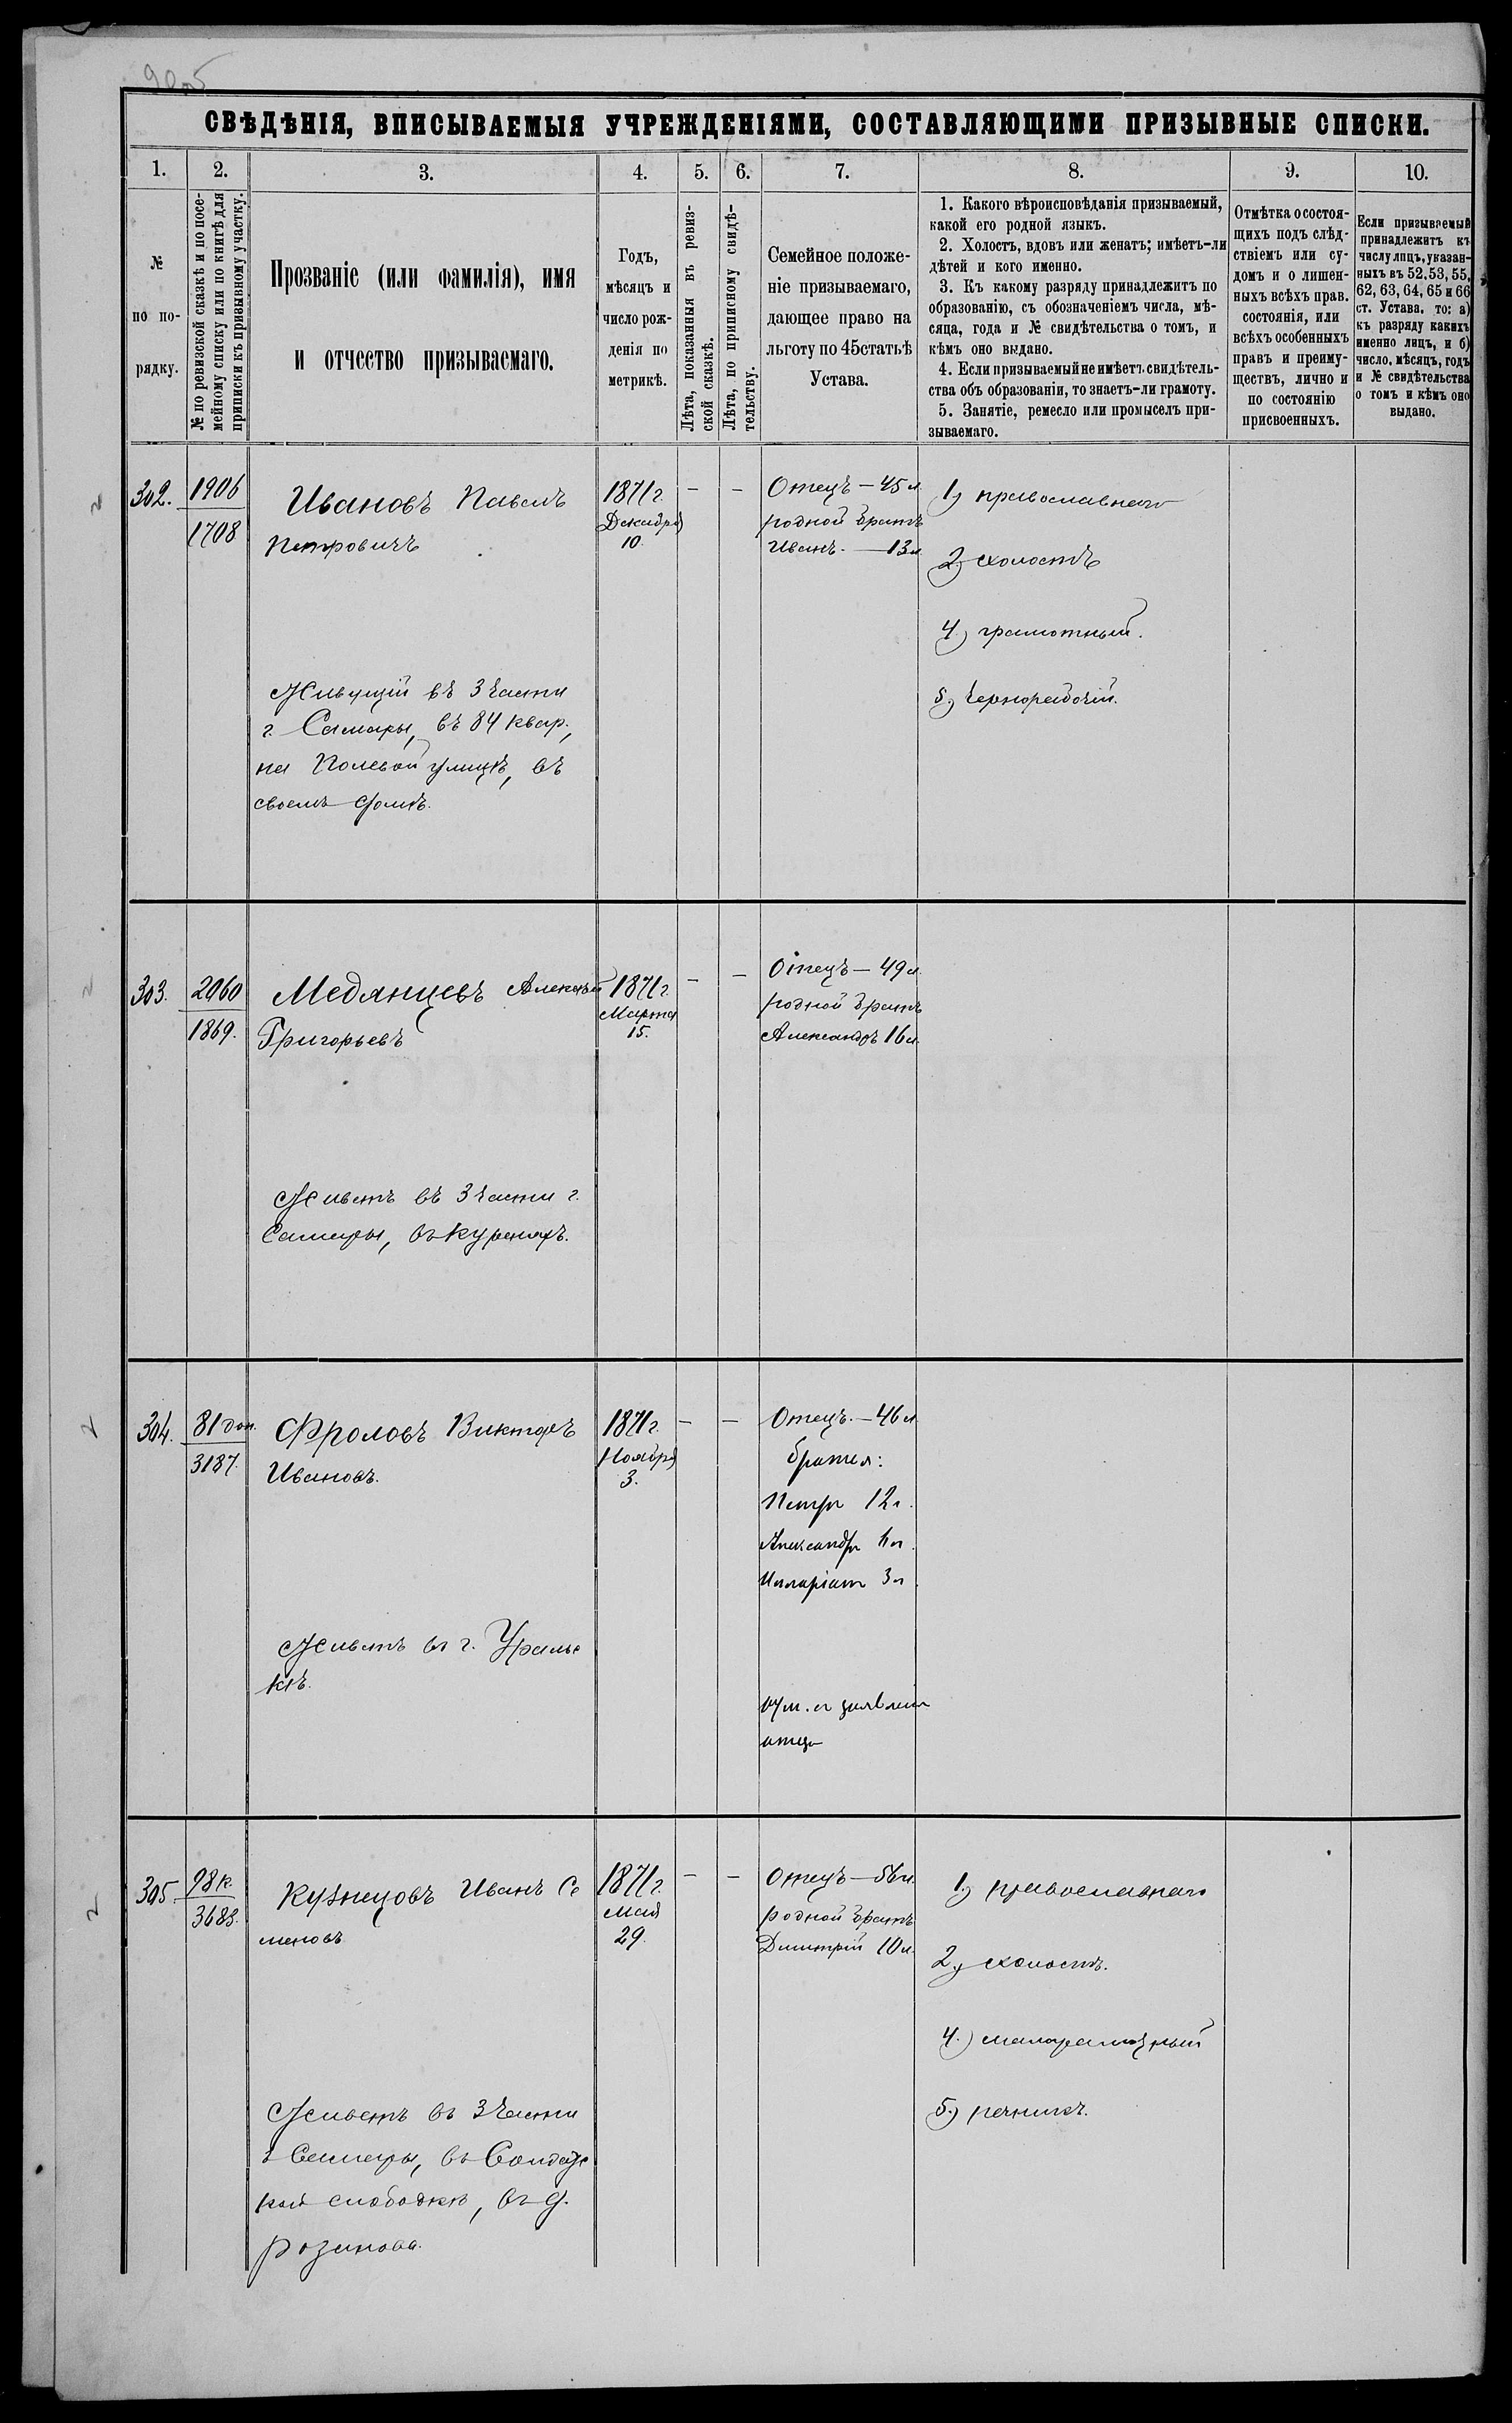 СВѢДѢНІЯ, ВПИСЫВАЕМЫЯ УЧРЕЖДЕНІЯМИ, СОСТАВЛЯЮЩИМИ ПРИЗЫВНЫЕ СПИСКИ.
1. 2. 3. 4. 5. 6. 7. 8. 9. 10.
№
по по-
рядку.
№ по ревизской сказкѣ и по посе-
мейному списку или по книгѣ для
приписки къ призывному участку.
Прозваніе (или фамилія), имя
и отчество призываемаго.
Годъ,
мѣсяцъ и
число рож-
денія по
метрикѣ.
Лѣта, показанныя въ ревиз-
ской сказкѣ.
Лѣта, по приписному свидѣ-
тельству.
Семейное положе-
ніе призываемаго,
дающее право на
льготу по 45 статьѣ
Устава.
1. Какого вѣроисповѣданія призываемый,
какой его родной языкъ.
2. Холостъ, вдовъ или женатъ; имѣетъ-ли
дѣтей и кого именно.
3. Къ какому разряду принадлежитъ по
образованію, съ обозначеніемъ числа, мѣ-
сяца, года и № свидѣтельства о томъ, и
кѣмъ оно выдано.
4. Если призываемый не имѣетъ свидѣтель-
ства объ образованіи, то знаетъ-ли грамоту.
5. Занятіе, ремесло или промыселъ при-
зываемаго.
Отмѣтка о состоя-
щихъ подъ слѣд-
ствіемъ или су-
домъ и о лишен-
ныхъ всѣхъ прав.
состоянія, или
всѣхъ особенныхъ
правъ и преиму-
ществъ, лично и
по состоянію
присвоенныхъ.
Если призываемый
принадлежитъ къ
числу лицъ, указан-
ныхъ въ 52, 53, 55,
62, 63, 64, 65 и 66
ст. Устава, то: а)
къ разряду какихъ
именно лицъ, и б)
число, мѣсяцъ, годъ
и № свидѣтельства
о томъ и кѣмъ оно
выдано.
302.
1906
1708
Ивановъ Павелъ
Петровичъ
Живущій въ 3 части
г. Самары, въ 84 квар.,
на Полевой улицѣ, въ
своемъ домѣ.
1871 г.
Декабря
10.
—
—
Отецъ — 45 л.
родной братъ
Иванъ. — 13 л.
1) православнаго
2) холостъ
4) грамотный.
5) чернорабочій.
303.
2060
1869.
Медянцевъ Алексѣй
Григорьевъ
Живетъ въ 3 части г.
Самары, въ куреняхъ.
1871 г.
Марта
15.
—
—
Отецъ — 49 л.
родной братъ
Александръ 16 л.
304.
81 доп.
3187.
Фроловъ Викторъ
Ивановъ.
Живетъ въ г. Ураль
скѣ.
1871 г.
Ноября
3.
—
—
Отецъ. — 46 л.
братья:
Петръ 12 л.
Александръ
Илларіонъ 3 л.
отца
305.
98 к.
3688.
Кузнецовъ Иванъ Се
меновъ
Живетъ въ 3 части
г. Самары, въ Солдатс
кой слободкѣ, въ д.
Розанова.
1871 г.
Мая
29.
—
—
Отецъ — 56 л.
родной братъ
Димитрій 10 л.
1) православнаго
2) холостъ.
4.) малограмотный
5.) печникъ.